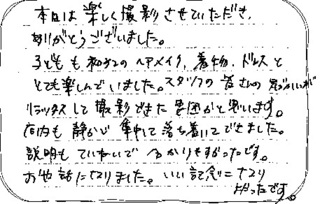 本日は楽しく撮影させていただき、
ありがとうございました。
子どもも初めてのヘアメイク、着物、ドレスと
とても楽しんでいました。スタッフの皆さんの
リラックスして撮影できた
店内も静かで集中して落ち着いてできました。
説明もていねいで分かりやすかったです。
お世話になりました。いい記念になり
よかったです。